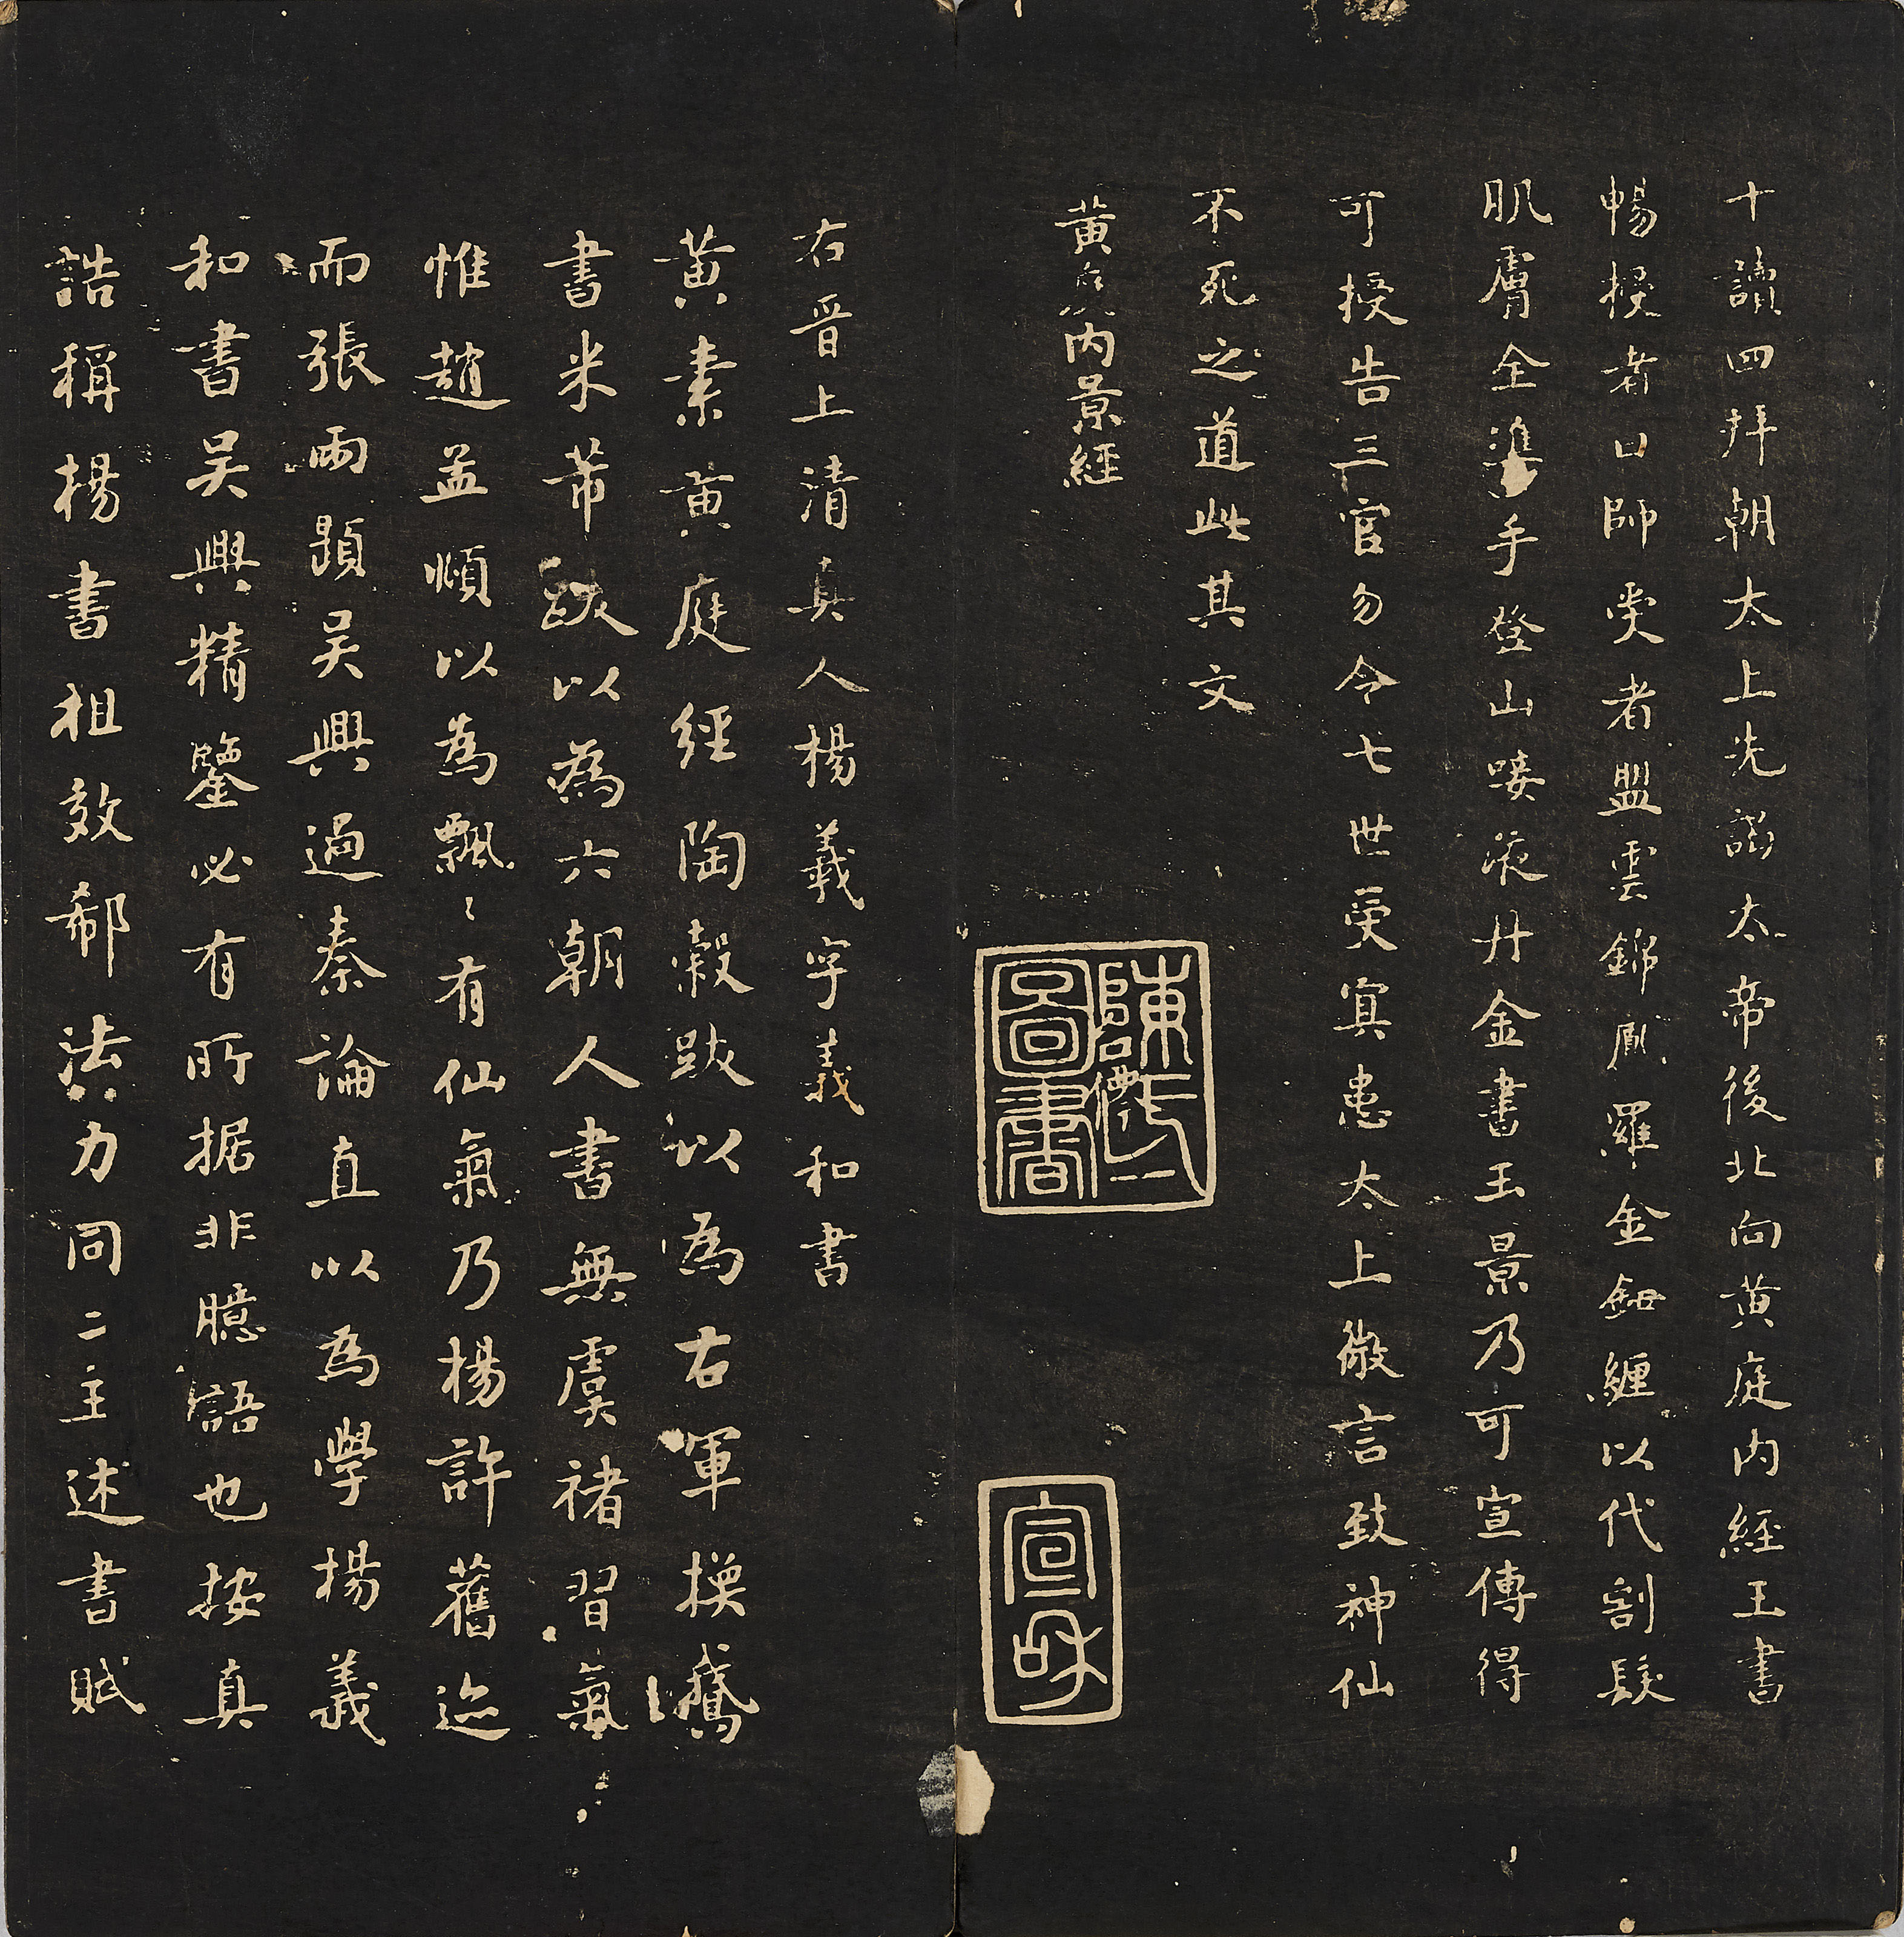 十讀四拜朝太上先謁太帝後北向黄庭内經玉書
暢授者曰師受者盟雲錦鳳羅金鈕纏以代割髮
肌膚全準手登山唼液丹金書玉景乃可宣傳得
可授告三官勿令七世受冥患太上微言致神仙
不死之道此其文
黄庭内景經
陳氏圖書
宣和
右晋上清真人楊羲字羲和書
黄素黄庭經陶穀跋以為右軍換鵞
書米芾跋以為六朝人書無虞褚習氣
惟趙孟頫以為飄〻有仙氣乃楊許舊迹
而張雨題吴興過秦論直以為學楊羲
和書吴興精鑒必有所据非臆語也按真
誥稱楊書祖效郗法力同二王述書賦